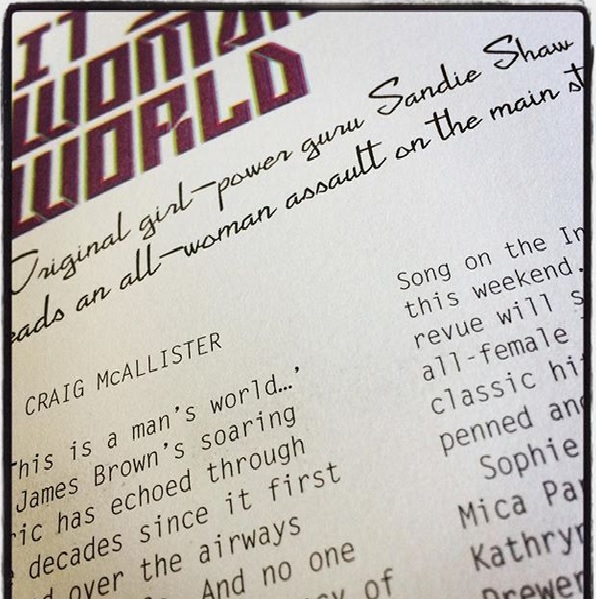 WOMAN
WORLD
Original girl-power guru Sandie Shaw
an all-woman assault on the main
CRAIG McALLISTER
This is a man's world...'
James Brown's soaring
has echoed through
decades since it first
over the airways
And no one
of
Song on the
this weekend.
revue will
all-female
classic
penned
Sophie
Mica
Kathryn